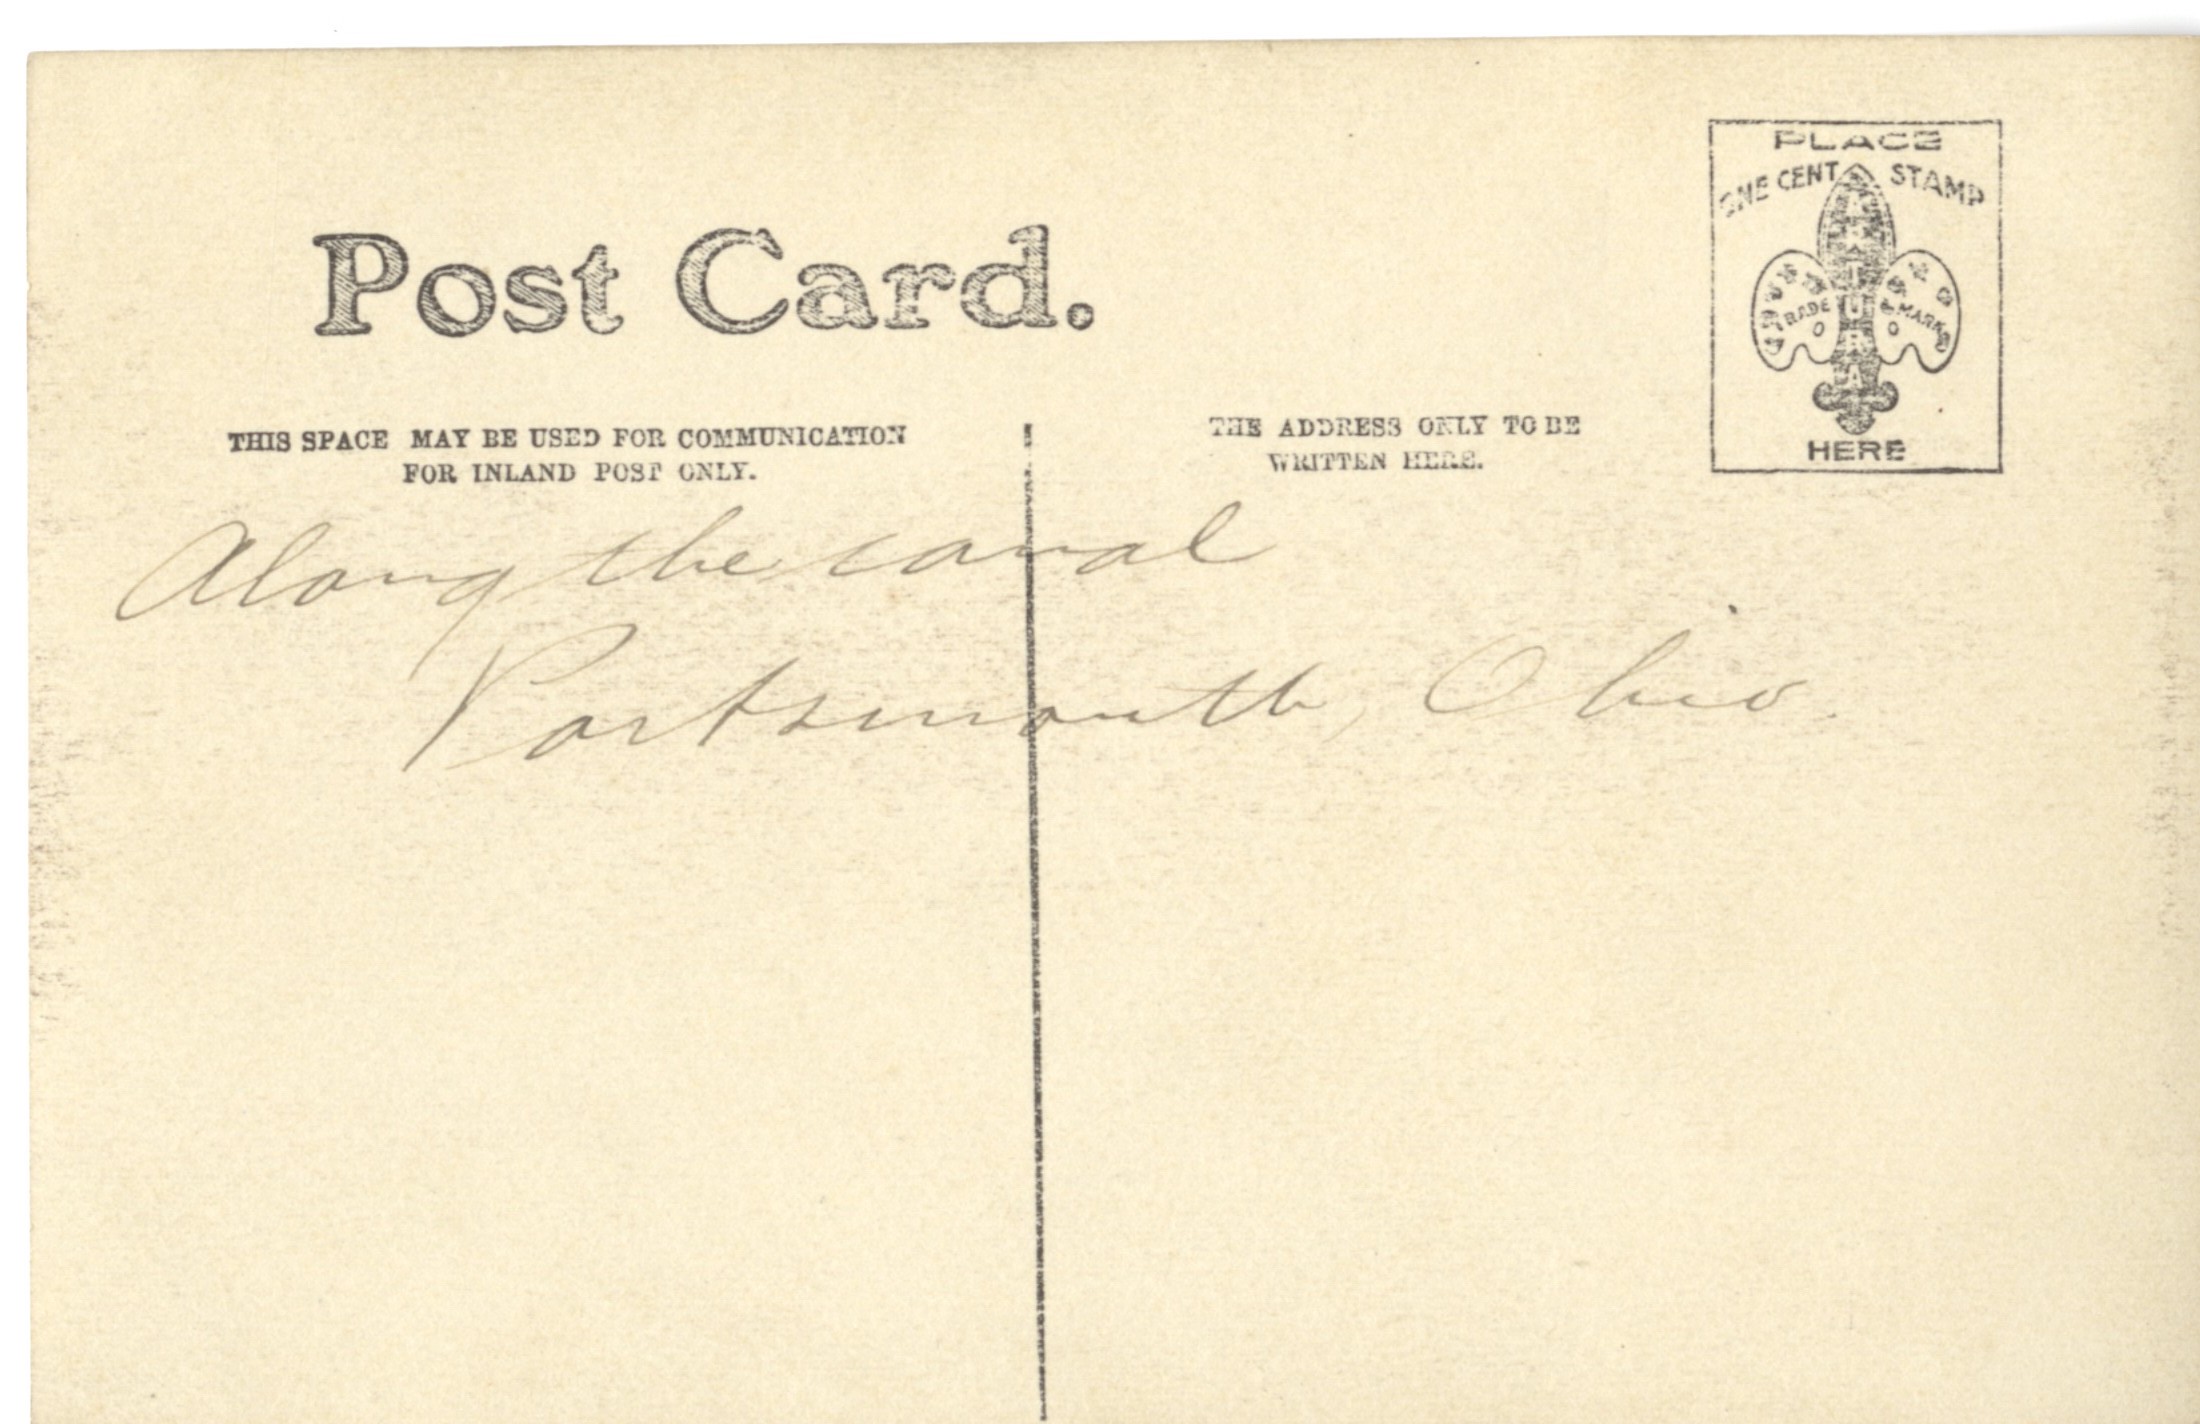 Post Card.
PLACE
ONE CENT STAMP
ARTURA
TRADE MARK
HERE
THIS SPACE MAY BE USED FOR COMMUNICATION
FOR INLAND POST ONLY.
THE ADDRESS ONLY TO BE
WRITTEN HERE.
Along the canal
Portsmouth, Ohio.